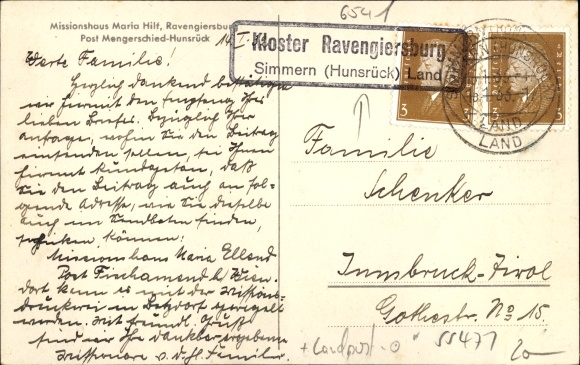 Missionshaus Maria Hilf, Ravengiersburg
Post Mengerschied-Hunsrück
14.I.
6541
Kloster Ravengiersburg
Simmern (Hunsrück) Land
3
3
LAND
LAND
Werte Familie!
Herzlich dankend bestätigen
wir hiermit den Empfang Ihres
lieben Briefes. Bezüglich Ihrer
Anfrage, wohin Sie den Beitrag
einsenden sollen, sei Ihnen
hiermit kundgetan, daß
Sie den Beitrag auch an fol-
gende Adresse, wie Sie dieselbe
auch im finden,
schicken können:
Missionshaus Maria Ellend
Post Fischamend b. Wien.
Dort kann es mit der Missions-
druckerei in Betzdorf geregelt
werden. Mit freundl. Gruß
sind wir Ihre dankbar ergebene
Missionare v. d. hl. Familie.
Familie
Schenker
Innsbruck-Tirol
Gothestr. No 15.
+ Landpost-O
55471
20-